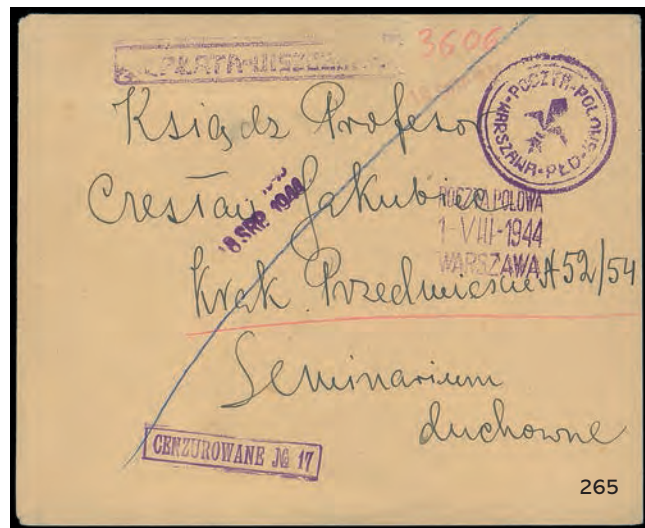 3606
OPŁATA-UISZCZONA
POCZTA-POLOWA
WARSZAWA-PŁD
Ksiądz Profesor
Czesław Jakubiec
18 SRP 1944
POCZTA POLOWA
1-VIII-1944
WARSZAWA
Krak. Przedmieście 52/54
Seminarium
duchowne
CENZUROWANE № 17
265